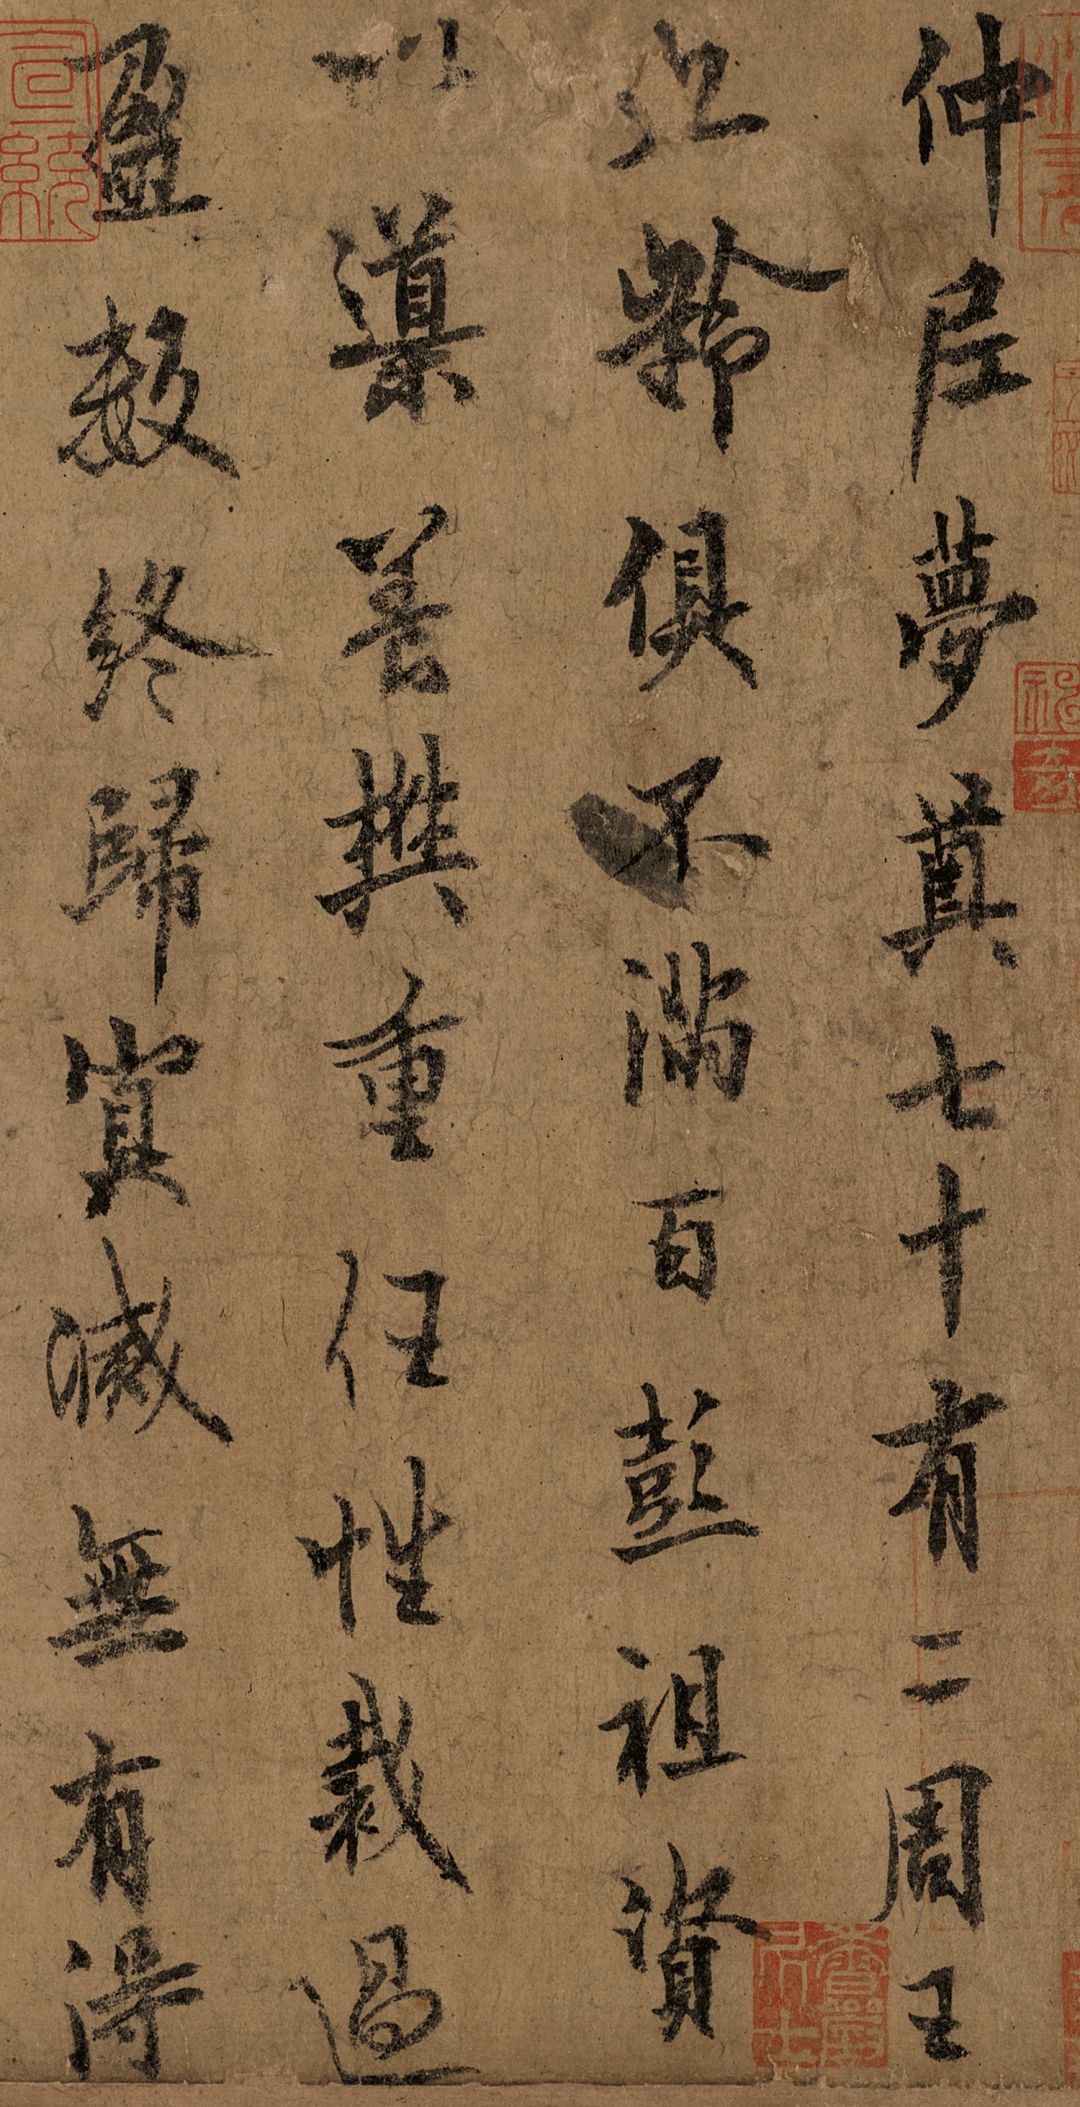 仲尼夢奠七十有二周王
九齡俱不滿百彭祖資
以導養樊重任性裁過
盈數終歸冥滅無有得
宣統